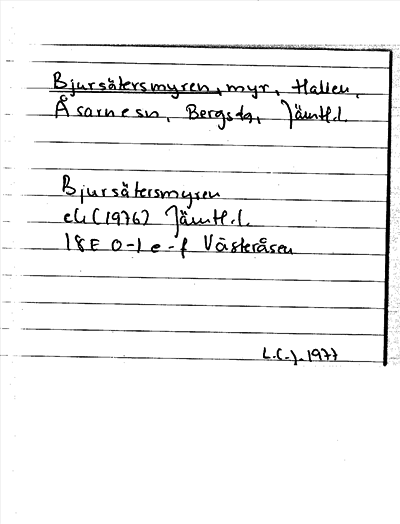 Bjursätersmyren, myr, Hallen,
Åsarne sn, Bergs da, Jämtl.l.
Bjursätersmyren
ek (1976) Jämtl.l.
18E 0-1 e-f Västeråsen
L.C.J. 1977